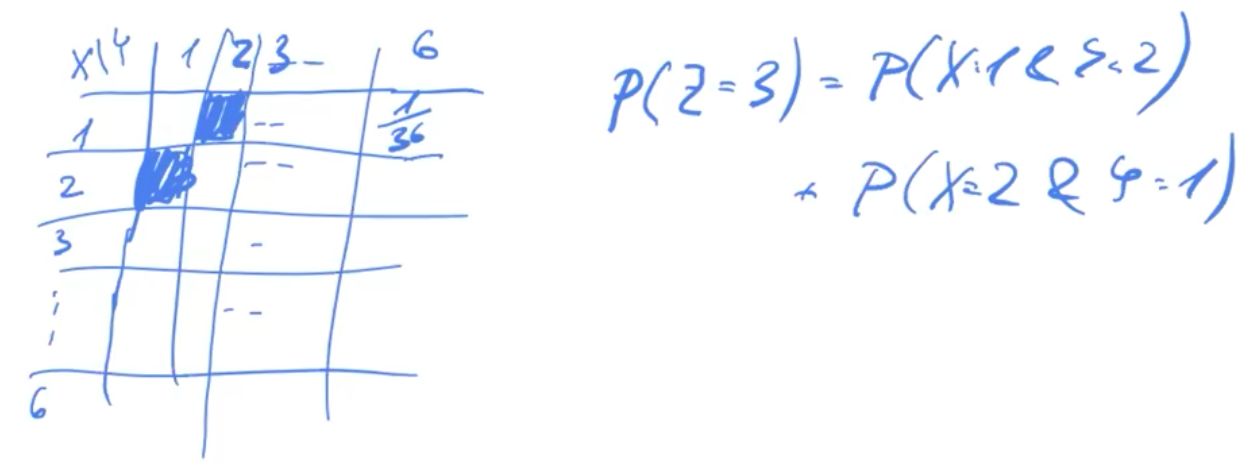 X\Y 1 2 3 -- 6
1 -- 1/36
2 --
3 -
⋮ --
6
P(Z=3) = P(X=1 & Y=2)
+ P(X=2 & Y=1)